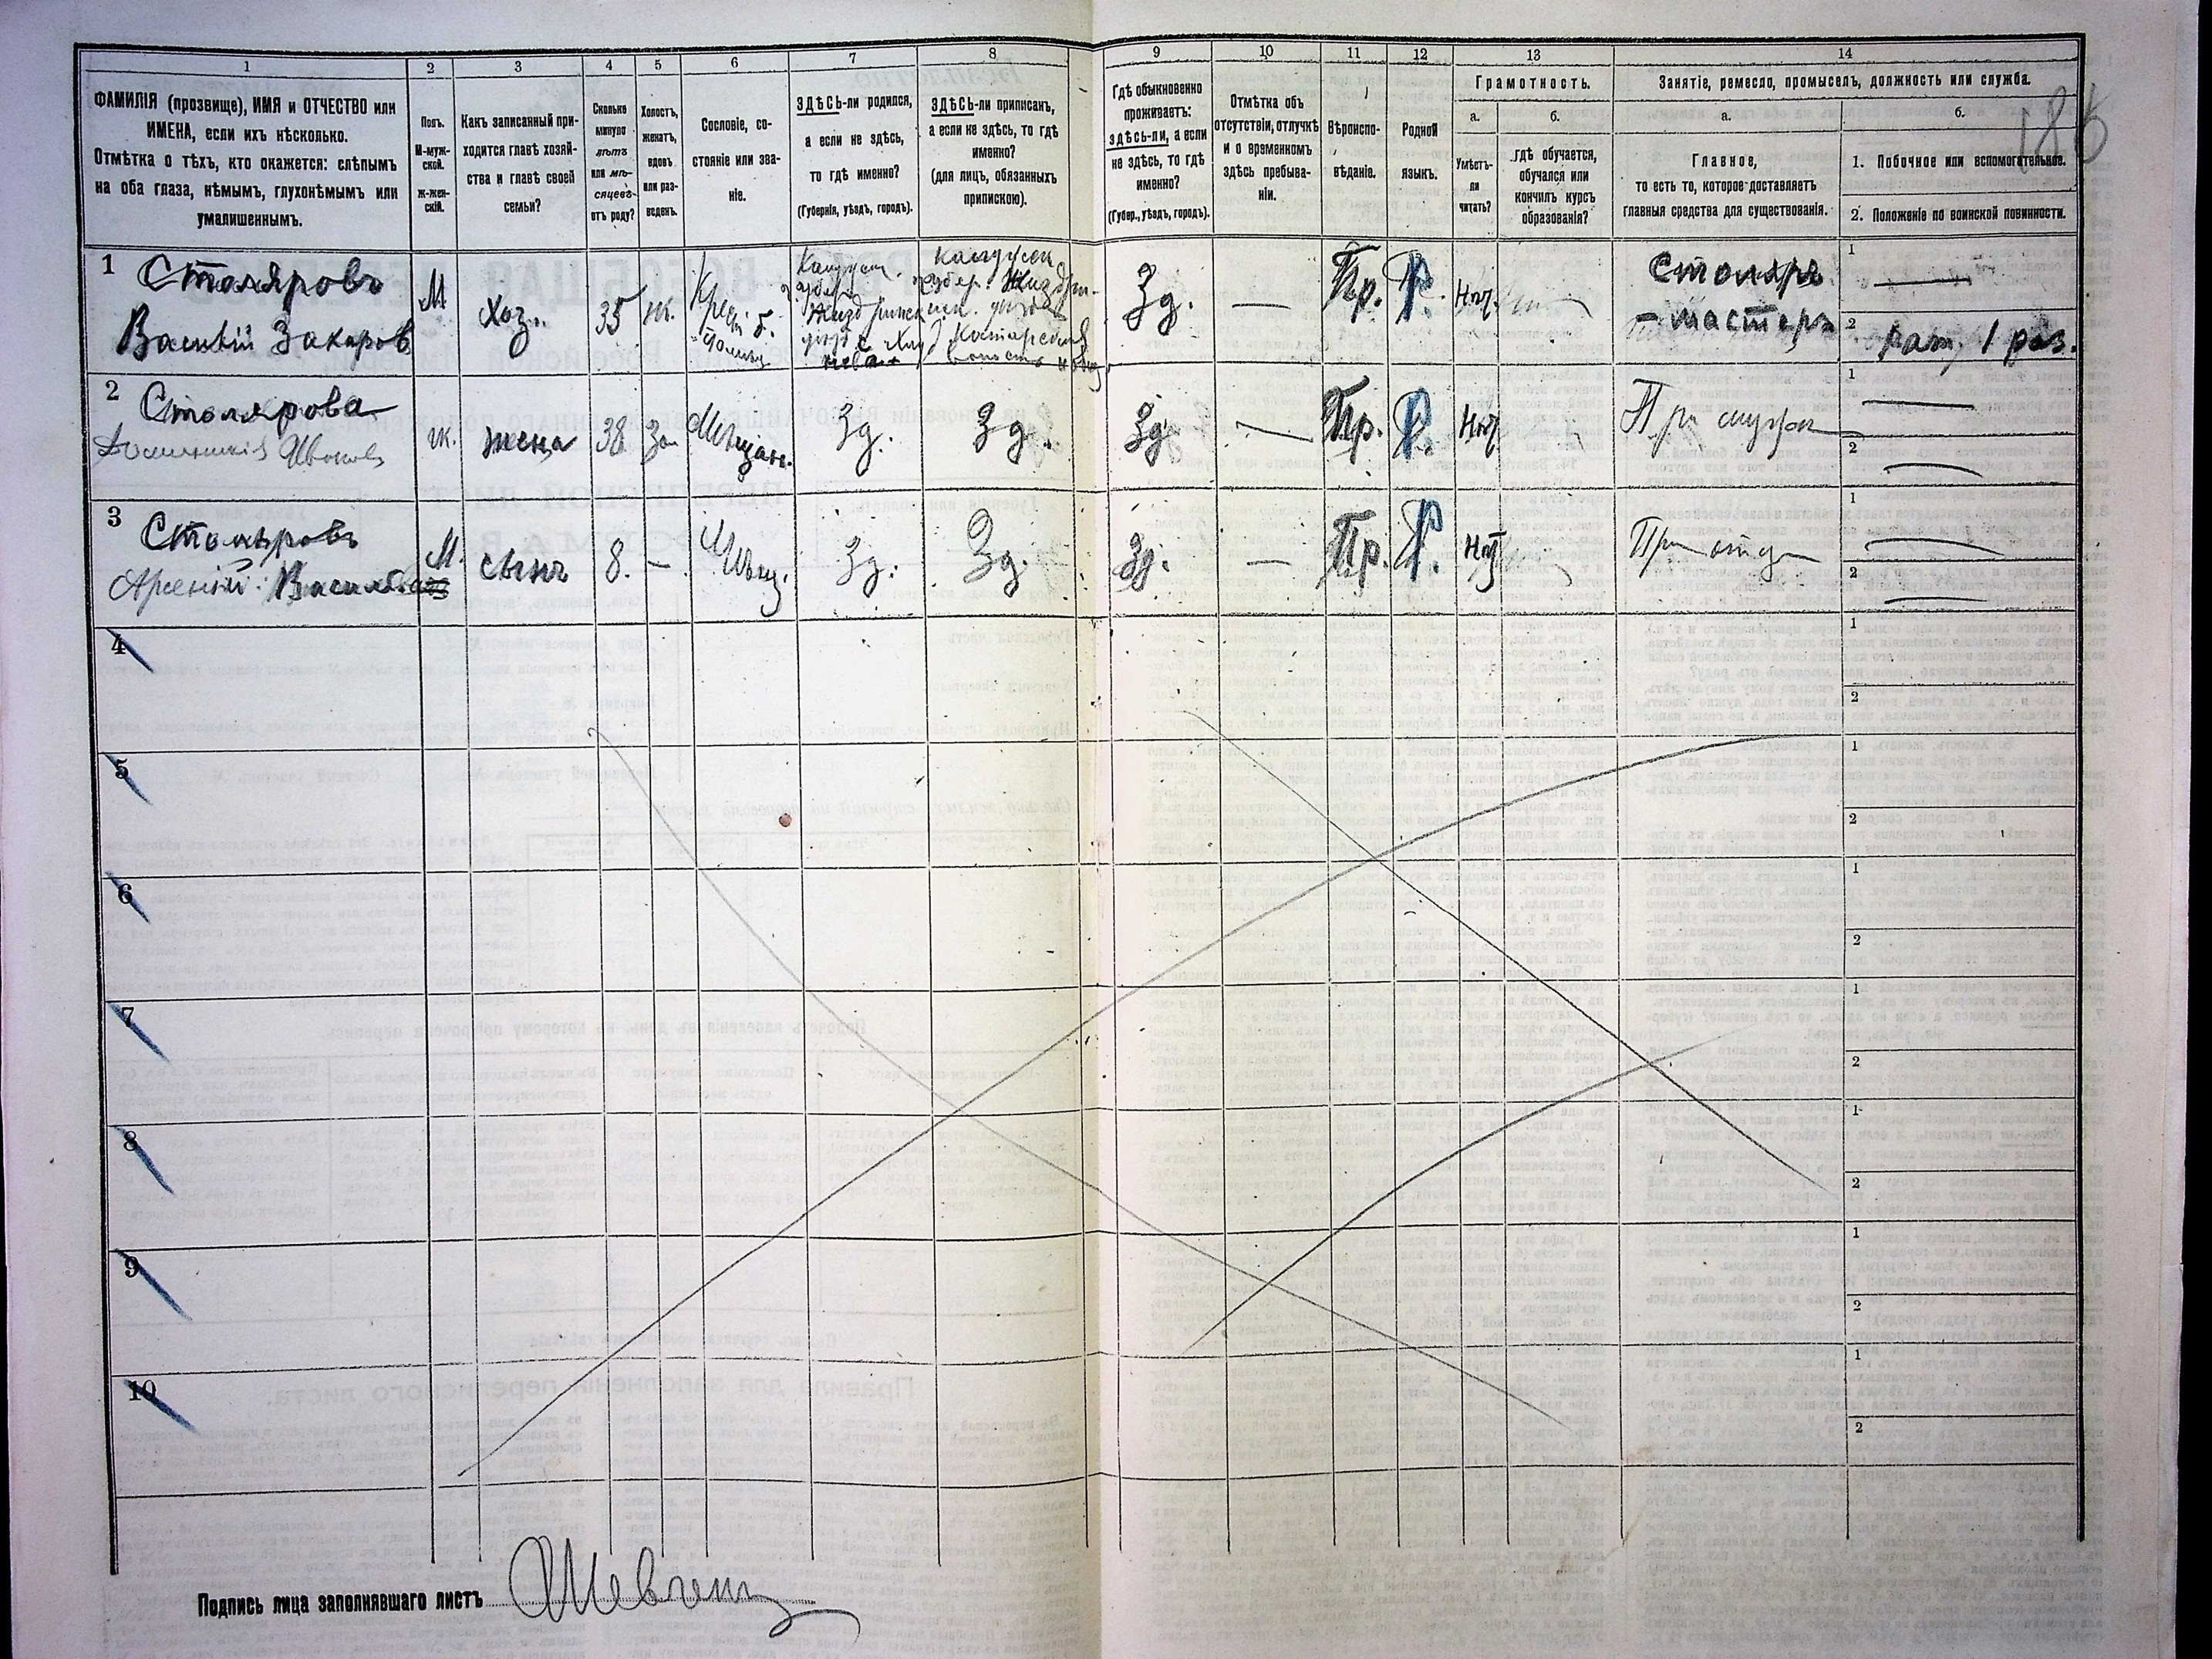 1
2
3
4
5
6
7
8
9
10
11
12
13
14
186
ФАМИЛІЯ (прозвище), ИМЯ и ОТЧЕСТВО или
ИМЕНА, если ихъ нѣсколько.
Отмѣтка о тѣхъ, кто окажется: слѣпымъ
на оба глаза, нѣмымъ, глухонѣмымъ или
умалишеннымъ.
Полъ.
М-муж-
ской.
Ж-жен-
скій.
Какъ записанный при-
ходится главѣ хозяй-
ства и главѣ своей
семьи?
Сколько
минуло
лѣтъ
или мѣ-
сяцевъ
отъ роду?
Холостъ,
женатъ,
вдовъ
или раз-
веденъ.
Сословіе, со-
стояніе или зва-
ніе.
ЗДѢСЬ-ли родился,
а если не здѣсь,
то гдѣ именно?
(Губернія, уѣздъ, городъ).
ЗДѢСЬ-ли приписанъ,
а если не здѣсь, то гдѣ
именно?
(для лицъ, обязанныхъ
припискою).
Гдѣ обыкновенно
проживаетъ:
здѣсь-ли, а если
не здѣсь, то гдѣ
именно?
(Губер., уѣздъ, городъ).
Отмѣтка объ
отсутствіи, отлучкѣ
и о временномъ
здѣсь пребыва-
ніи.
Вѣроиспо-
вѣданіе.
Родной
языкъ.
Грамотность.
а.
Умѣетъ-
ли
читать?
б.
гдѣ обучается,
обучался или
кончилъ курсъ
образованія?
Занятіе, ремесло, промыселъ, должность или служба.
а.
Главное,
то есть то, которое доставляетъ
главныя средства для существованія.
б.
1. Побочное или вспомогательное.
2. Положеніе по воинской повинности.
1
Столяровъ
Василій Захаров
М
Хоз.
35
Калужск.
губер.
Жиздринск
калужск
губер. Жиздри-
Зд.
—
Пр.
Р.
Нѣт.
Столяръ
мастеръ
1 —
2 рат. 1 раз.
2
Столярова
Ж.
жена
38
За
Мѣщан.
Зд.
Зд.
Зд.
—
Пр.
Р.
Нѣт
При мужѣ
1 —
2 —
3
Столяровъ
Арсеній Василь
М.
сынъ
8.
—
Мѣщ.
Зд.
Зд.
Зд.
—
Пр.
Р.
Нѣт
При отцѣ
1 —
2 —
4
1
2
5
1
2
6
1
2
7
1
2
8
1
2
9
1
2
10
1
2
Подпись лица заполнявшаго листъ